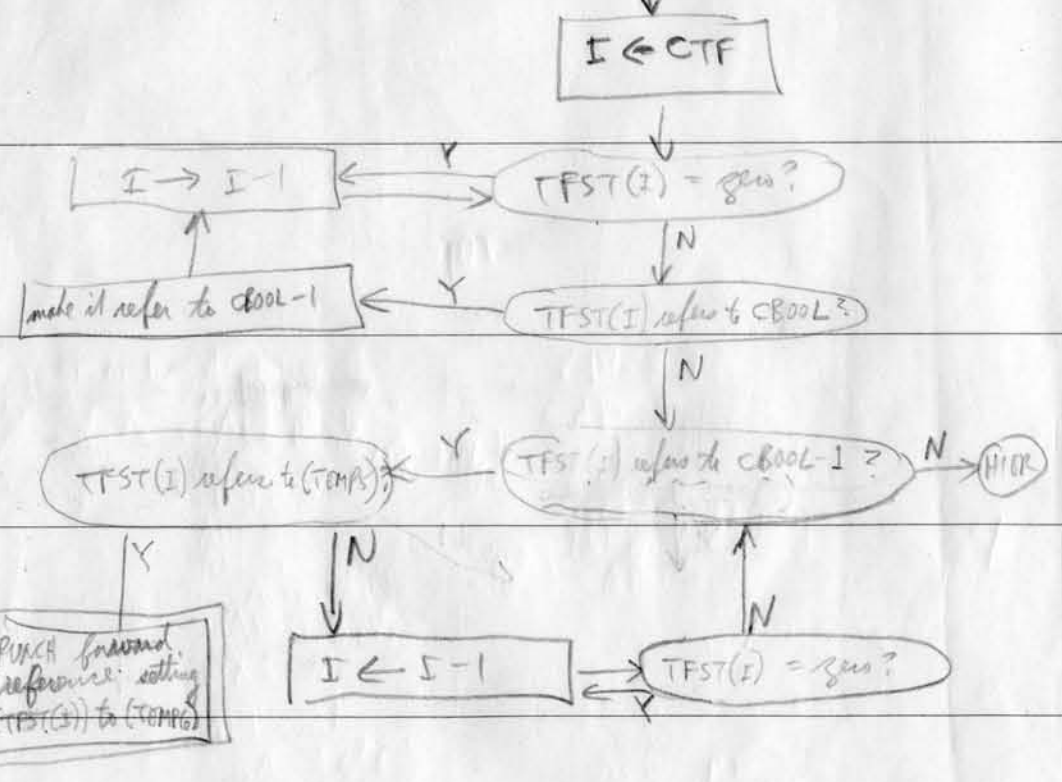 I ← CTF
Y
I → I-1
TFST(I) = zero?
N
Y
make it refer to CBOOL-1
TFST(I) refers to CBOOL?
N
Y
N
TFST(I) refers to (TEMPS)?
TFST(I) refers to CBOOL-1 ?
HIER
Y
N
N
PUNCH forward
reference: setting
I ← I-1
TFST(I) = zero?
(TFST(I)) to (TEMPG)
Y